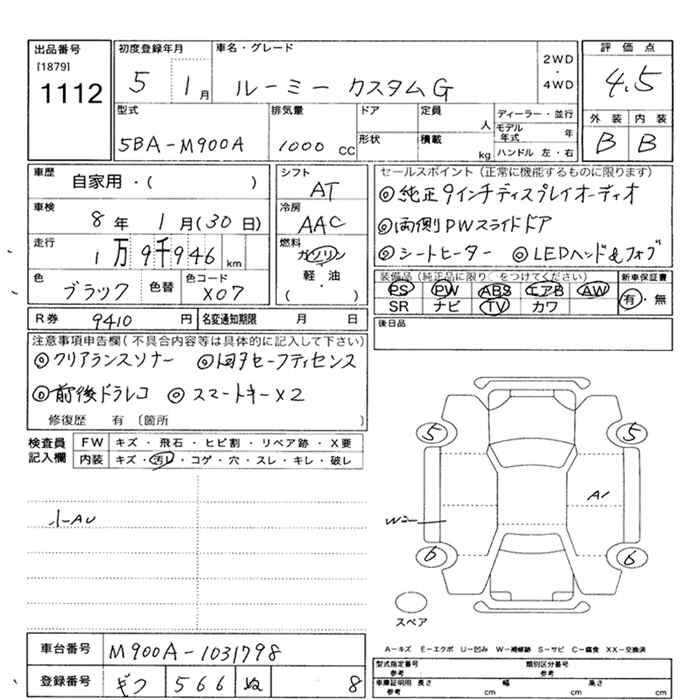 出品番号
[1879]
1112
初度登録年月
5 1月
車名・グレード
ルーミー カスタムG
2WD
・
4WD
評価点
4.5
外装 内装
B B
型式
5BA-M900A
排気量
1000 CC
ドア
形状
定員
人
積載
kg
ディーラー・並行
モデル年式 年
ハンドル 左・右
車歴
自家用・( )
車検
8年 1月(30日)
走行
1万9千946km
色
ブラック
色替
色コード
X07
シフト
AT
冷房
AAC
燃料
ガソリン
軽・油
( )
セールスポイント(正常に機能するものに限ります)
◎純正9インチディスプレイオーディオ
◎両側PWスライドドア
◎シートヒーター ◎LEDヘッド&フォグ
装備品(純正品に限り○をつけてください)
PS PW ABS エアB AW
SR ナビ TV カワ
新車保証書
有・無
後日品
R券 9410円
名変通知期限 月 日
注意事項申告欄(不具合内容等は具体的に記入して下さい)
◎クリアランスソナー ◎トヨタセーフティセンス
◎前後ドラレコ ◎スマートキーX2
修復歴 有 〔箇所 〕
検査員記入欄
FW キズ・飛石・ヒビ割・リペア跡・X要
内装 キズ・汚レ・コゲ・穴・スレ・キレ・破レ
小AU
5 5
A1
W2
6 6
スペア
A-キズ E-エクボ U-凹み W-補修跡 S-サビ C-腐食 XX-交換済
車台番号 M900A-1031798
登録番号 ギフ 566 ぬ 8
型式指定番号
参考
類別区分番号
参考
車庫証明用 長さ 幅 高さ
参考 cm cm cm